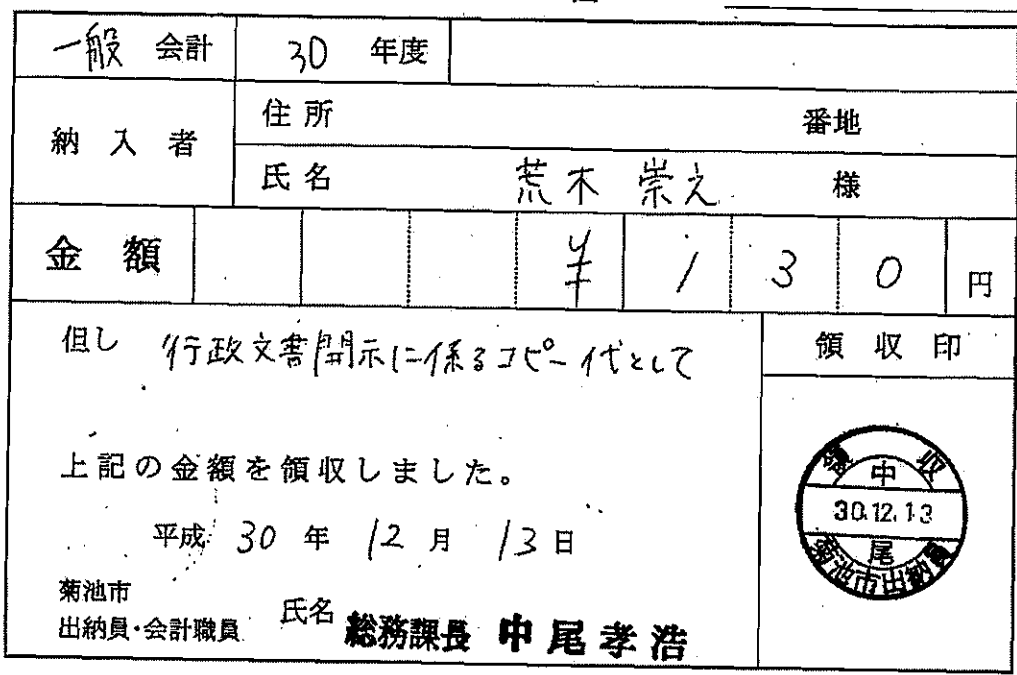 一般 会計 30 年度
納入者 住所 番地
氏名 荒木 崇之 様
金額 ¥130円
但し 行政文書開示に係るコピー代として
領収印
上記の金額を領収しました。
平成 30 年 12 月 13 日
菊池市
出納員・会計職員 氏名 総務課長 中尾孝浩
領収
中
30.12.13
尾
菊池市出納員